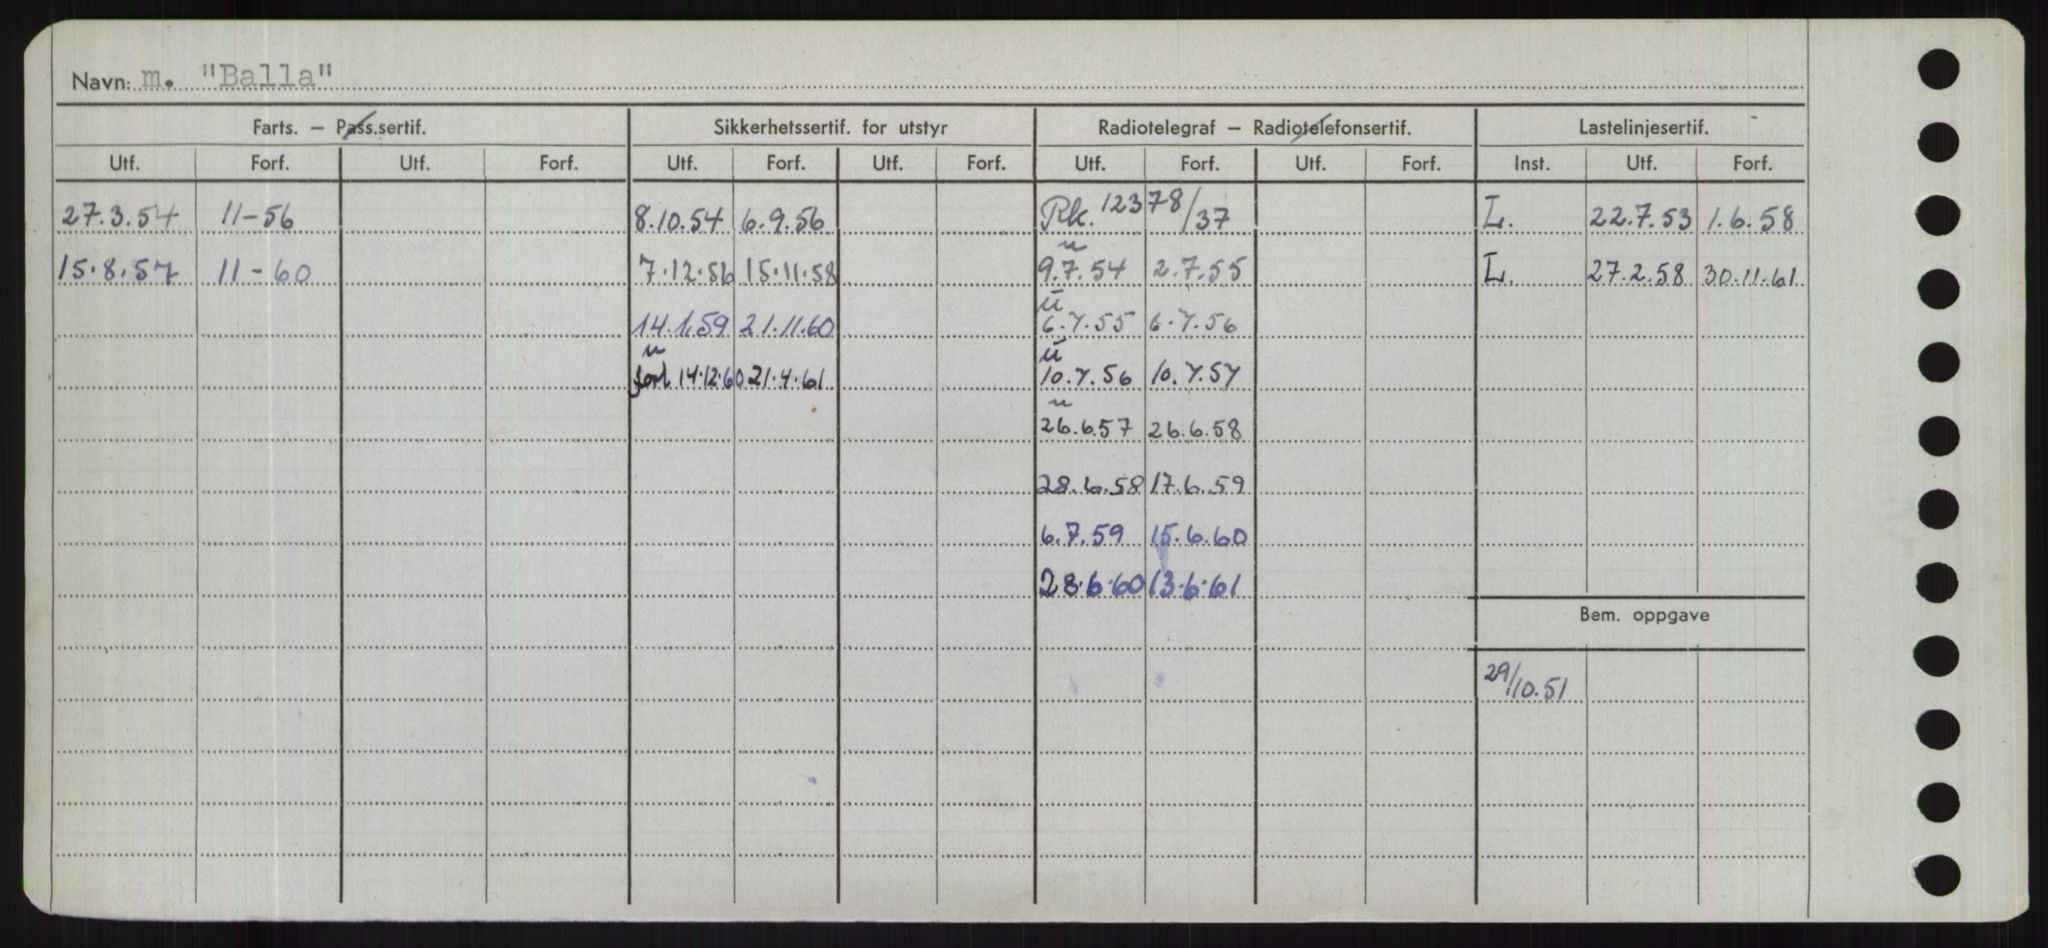 Navn: m. "Balla"
Farts. – Pass.sertif. Sikkerhetssertif. for utstyr Radiotelegraf – Radiotelefonsertif. Lastelinjesertif.
Utf. Forf. Utf. Forf. Utf. Forf. Utf. Forf. Utf. Forf. Utf. Forf. Inst. Utf. Forf.
27.3.54 11-56 8.10.54 6.9.56 Rk. 12378/37 L. 22.7.53 1.6.58
15.8.57 11-60 7.12.56 15.11.58 u 9.7.54 2.7.55 L. 27.2.58 30.11.61
14.1.59 21.11.60 u 6.7.55 6.7.56
u forl 14.12.60 21.4.61 u 10.7.56 10.7.57
u 26.6.57 26.6.58
28.6.58 17.6.59
6.7.59 15.6.60
28.6.60 13.6.61
Bem. oppgave
29/10.51